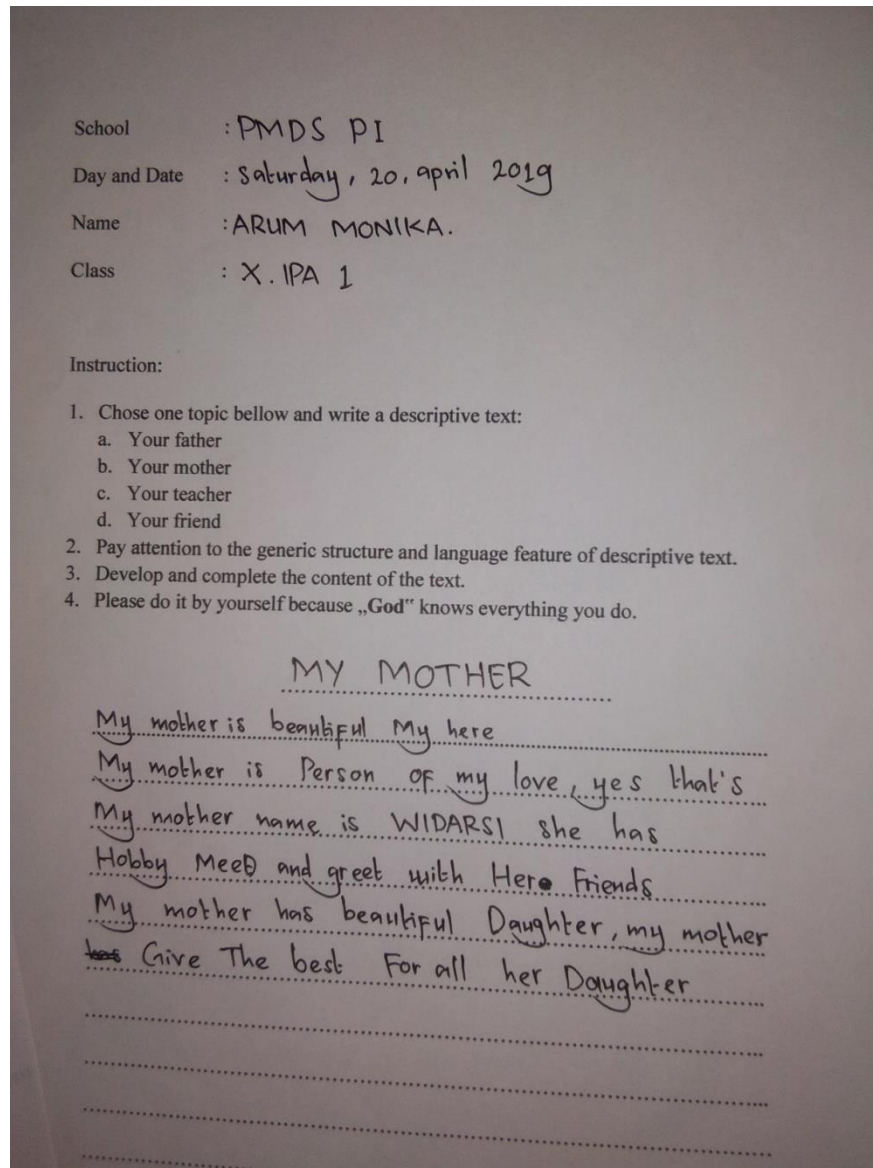 School : PMDS PI
Day and Date : Saturday, 20, april 2019
Name : ARUM MONIKA.
Class : X. IPA 1
Instruction:
1. Chose one topic bellow and write a descriptive text:
a. Your father
b. Your mother
c. Your teacher
d. Your friend
2. Pay attention to the generic structure and language feature of descriptive text.
3. Develop and complete the content of the text.
4. Please do it by yourself because „God‟ knows everything you do.
MY MOTHER
My mother is beautiful My here
My mother is Person of my love, yes that's
My mother name is WIDARSI she has
Hobby Meet and greet with Her Friends
My mother has beautiful Daughter, my mother
Give The best For all her Daughter